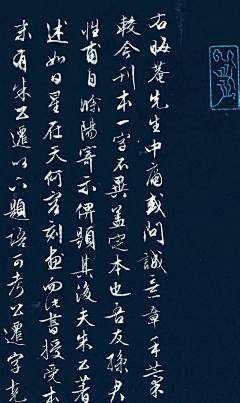 右晦菴先生中庸或問誠意章手藁
較今刋本一字不異蓋定本也吾友孫君
性甫自睢陽寄示俾題其後夫朱公著
述如日星在天何容刻畫而此書授受本
末有朱公遷以下題語可考公遷字克